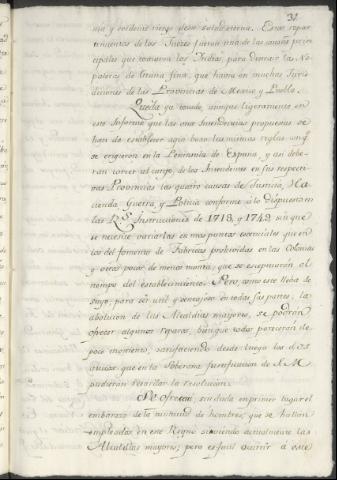 31
na y evidente riesgo de su salud eterna. Estos repar-
timientos de los Jueces fueron una de las causas prin-
cipales que tuvieron los Indios, para derrotar las No-
paleras de Grana fina, que havia en muchas Juris-
dicciones de las Provincias de Mexico y Puebla.
Queda ya tocado, aunque ligeramente en
este Informe que las once Intendencias propuestas se
han de establecer aqui baxo las mismas reglas conq.e
se erigieron en la Peninsula de España, y asi debe-
ran correr al cargo, de los Intendentes en sus respecti-
vas Provincias las quatro causas de Justicia, Ha-
cienda Guerra, y Policia conforme a lo dispuesto en
las R.s Instrucciones de 1718, y 1749 aunque
se necesite variarlas en unos puntos esenciales que en
los del fomento de Fabricas prohividas en las Colonias
y otros pocos de menos monta, que se especificarán al
tiempo del establecimiento. Pero como este lleva de
suyo, para ser util y ventajoso en todas sus partes, la
abolicion de los Alcaldias mayores, se podrán
ofrecer algunos reparos, bien que todos parecen de
poco momento, satisfaciendo desde luego los
que en la Soberana Justificacion de S. M.
pudieran retardar la resolucion.
Se ofrecerá, sin duda en primer lugar el
embarazo de la multitud de hombres, que se hallan
empleados en este Reyno sirviendo actualmente las
Alcaldias mayores; pero es facil ocurrir á este